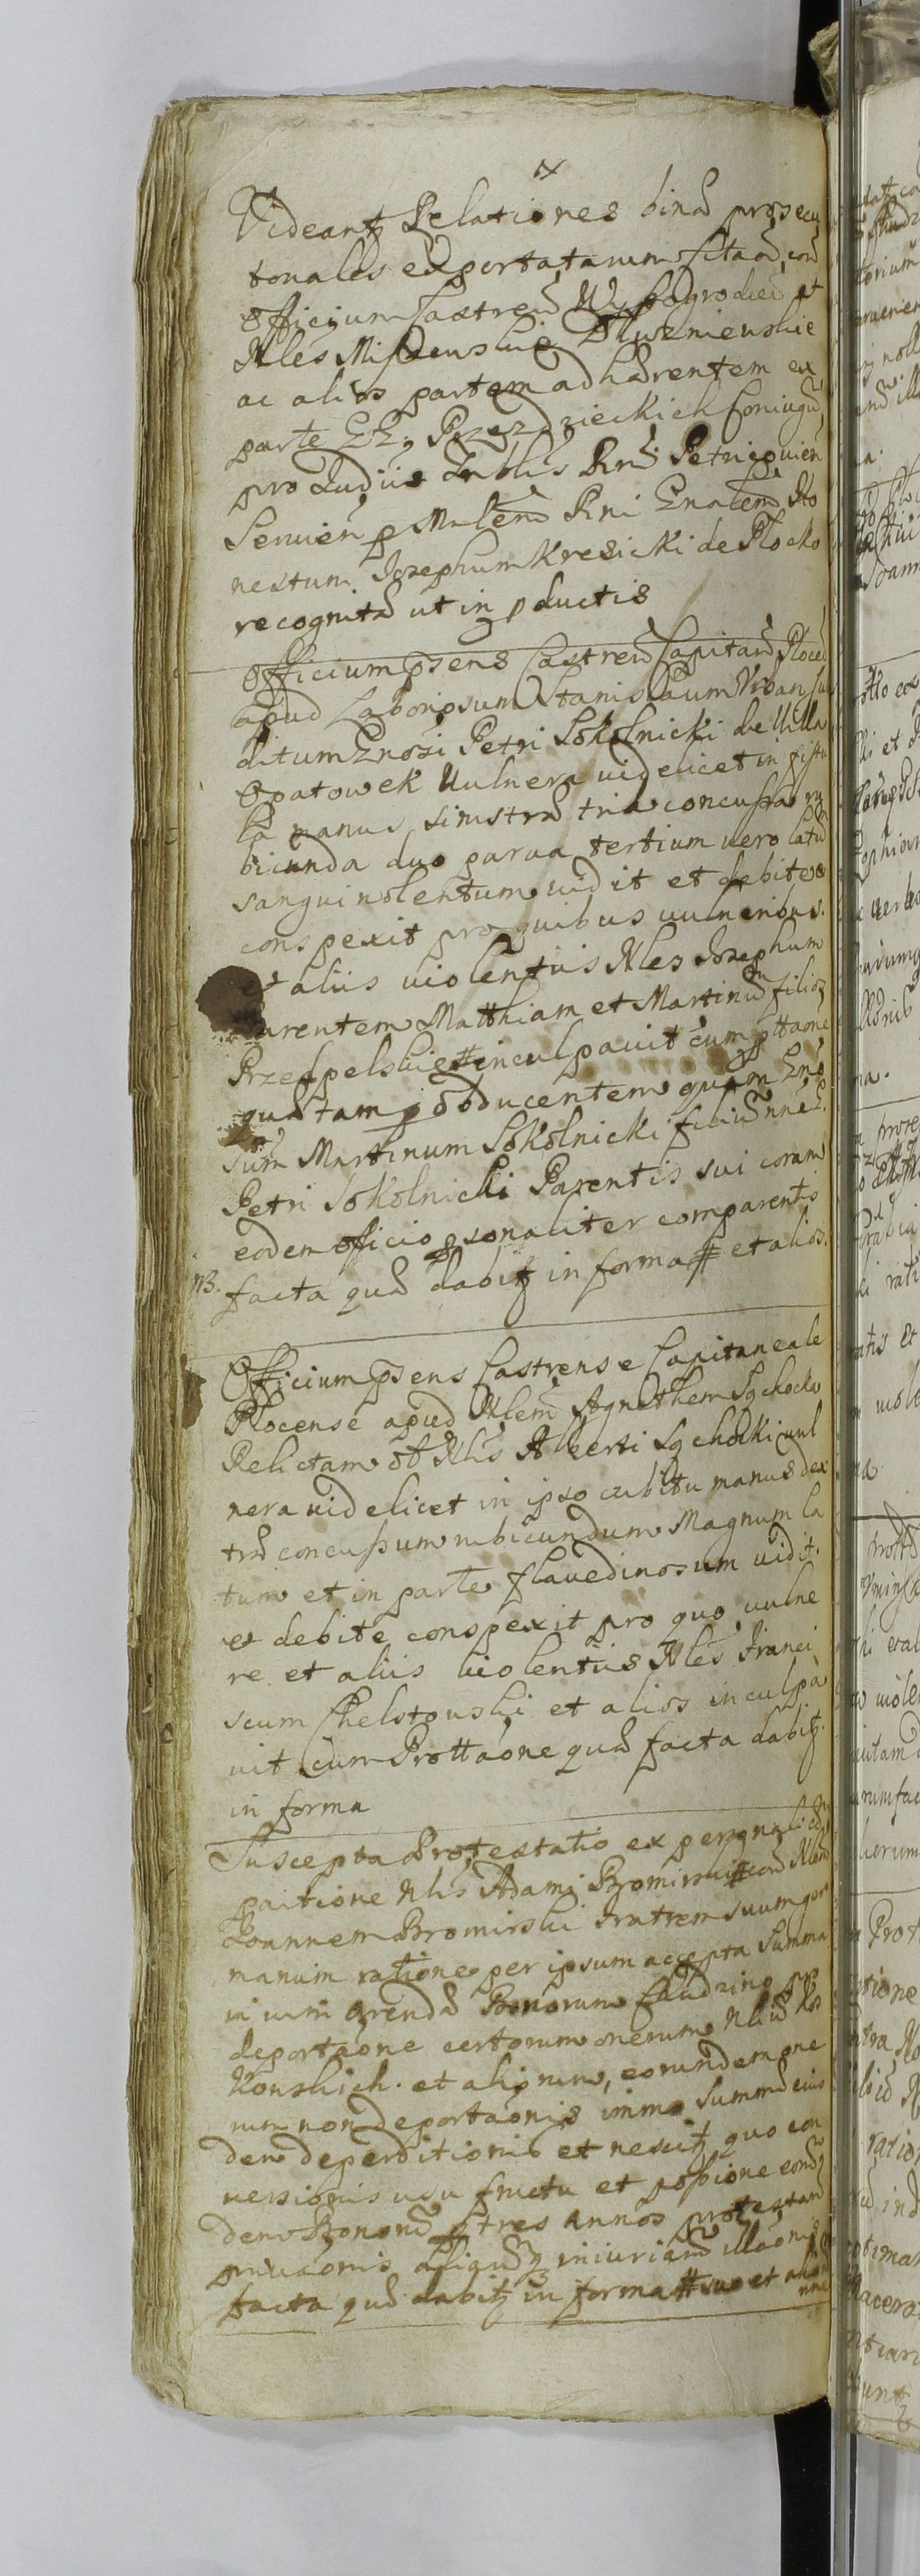 Videantz Relationes binæ prosecu
tionales exportatarum Citaõ, con
officium Castreñ Wyszogrodieñ et
Nles Miszewskie Dłuzniewskie
ac alios partem adhærentem ex
parte GG. Przezdzieckich Coniugũ,
pro Iudiis Rni
Ministeñ Rni Gnalem Ho
nestum Josephum Kresicki de Plocko
recognitæ ut in pductis
Officium psens Castreñ Capitañ Ploceñ
apud Laboriosum Stanislaum Urban Sub
ditum Gnosi Petri Sokolnicki de Villa
Opatowek Vulnera videlicet in fistu
la manus sinistræ tria concussa ru
bicunda duo parva tertium vero latũ
sanguinolentum vidit et debite
conspexit pro quibus vulneribus
et aliis violentiis Nles Josephum
Parentem Matthiam et Martinũ filios
Przedpelskie inculpavit cum pttaone
quã tam p obducentem quam Gno
sum Martinum Sokolnicki filiũ
Petri Sokolnicki Parentis sui coram
eodem officio psonaliter comparentis
NB. facta quæ dabitz in forma # et alios
Officium psens Castrense Capitaneale
Plocense apud Nlem Agnethem Sochocka
Relictam ol Nlis Alberti Sochocki vul
nera videlicet in ipso cubitu manus dex
træ concussum rubicundum Magnum la
tum et in parte flavedinosum vidit
et debite conspexit pro quo vulne
re et aliis violentiis Nles Franci
scum Chelstowski et alios inculpa
vit cum Prottaone quæ facta dabitz
in forma
Suscepta Protestatio ex personali com
paritione Nlis Adami Bromirski # con Nlem
Joannem Bromirski Fratrem suum ger
manum ratione per ipsum accepta Summa
in vim arendæ Bonorum pro
deportaone certorum onerum
et aliorum, eorundem one
rum non deportaonis immo Summæ eius
dem deperditionis et nescitz quo con
versionis usu fructu et possione eorũ
dem Bonorũ p tres annos protestañ
privaonis aliquãz iniuriarũ illaõnis
facta quæ dabitz in forma # suo et alior
nne